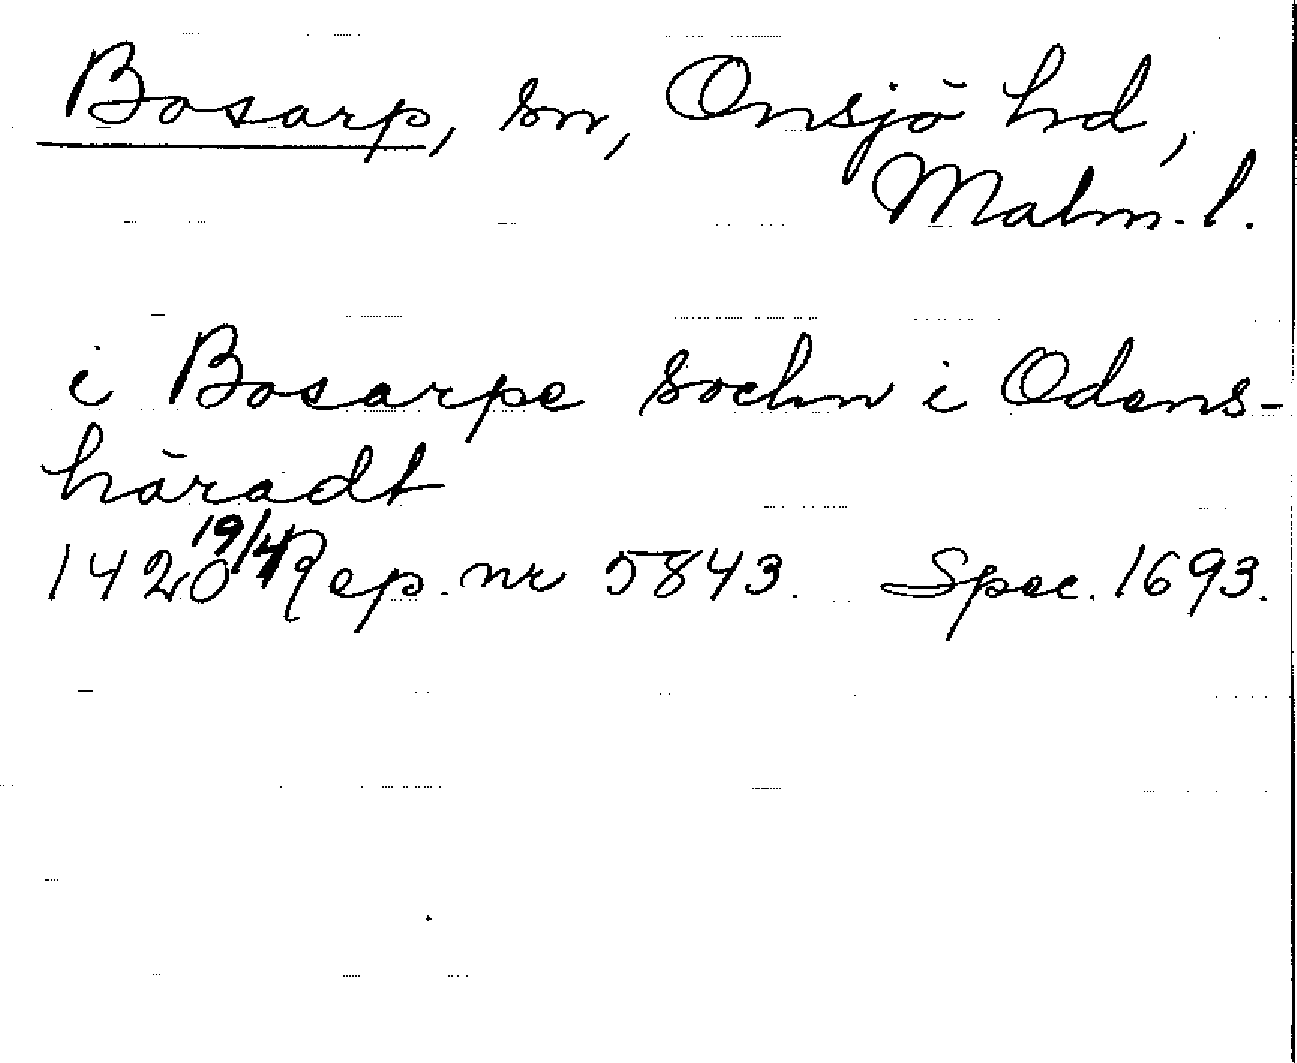 Bosarp, sn, Onsjö hd,
Malm. l.
i Bosarpe sochn i Odens-
häradt
1420 19/4 Rep. nr 5843. Spec. 1693.